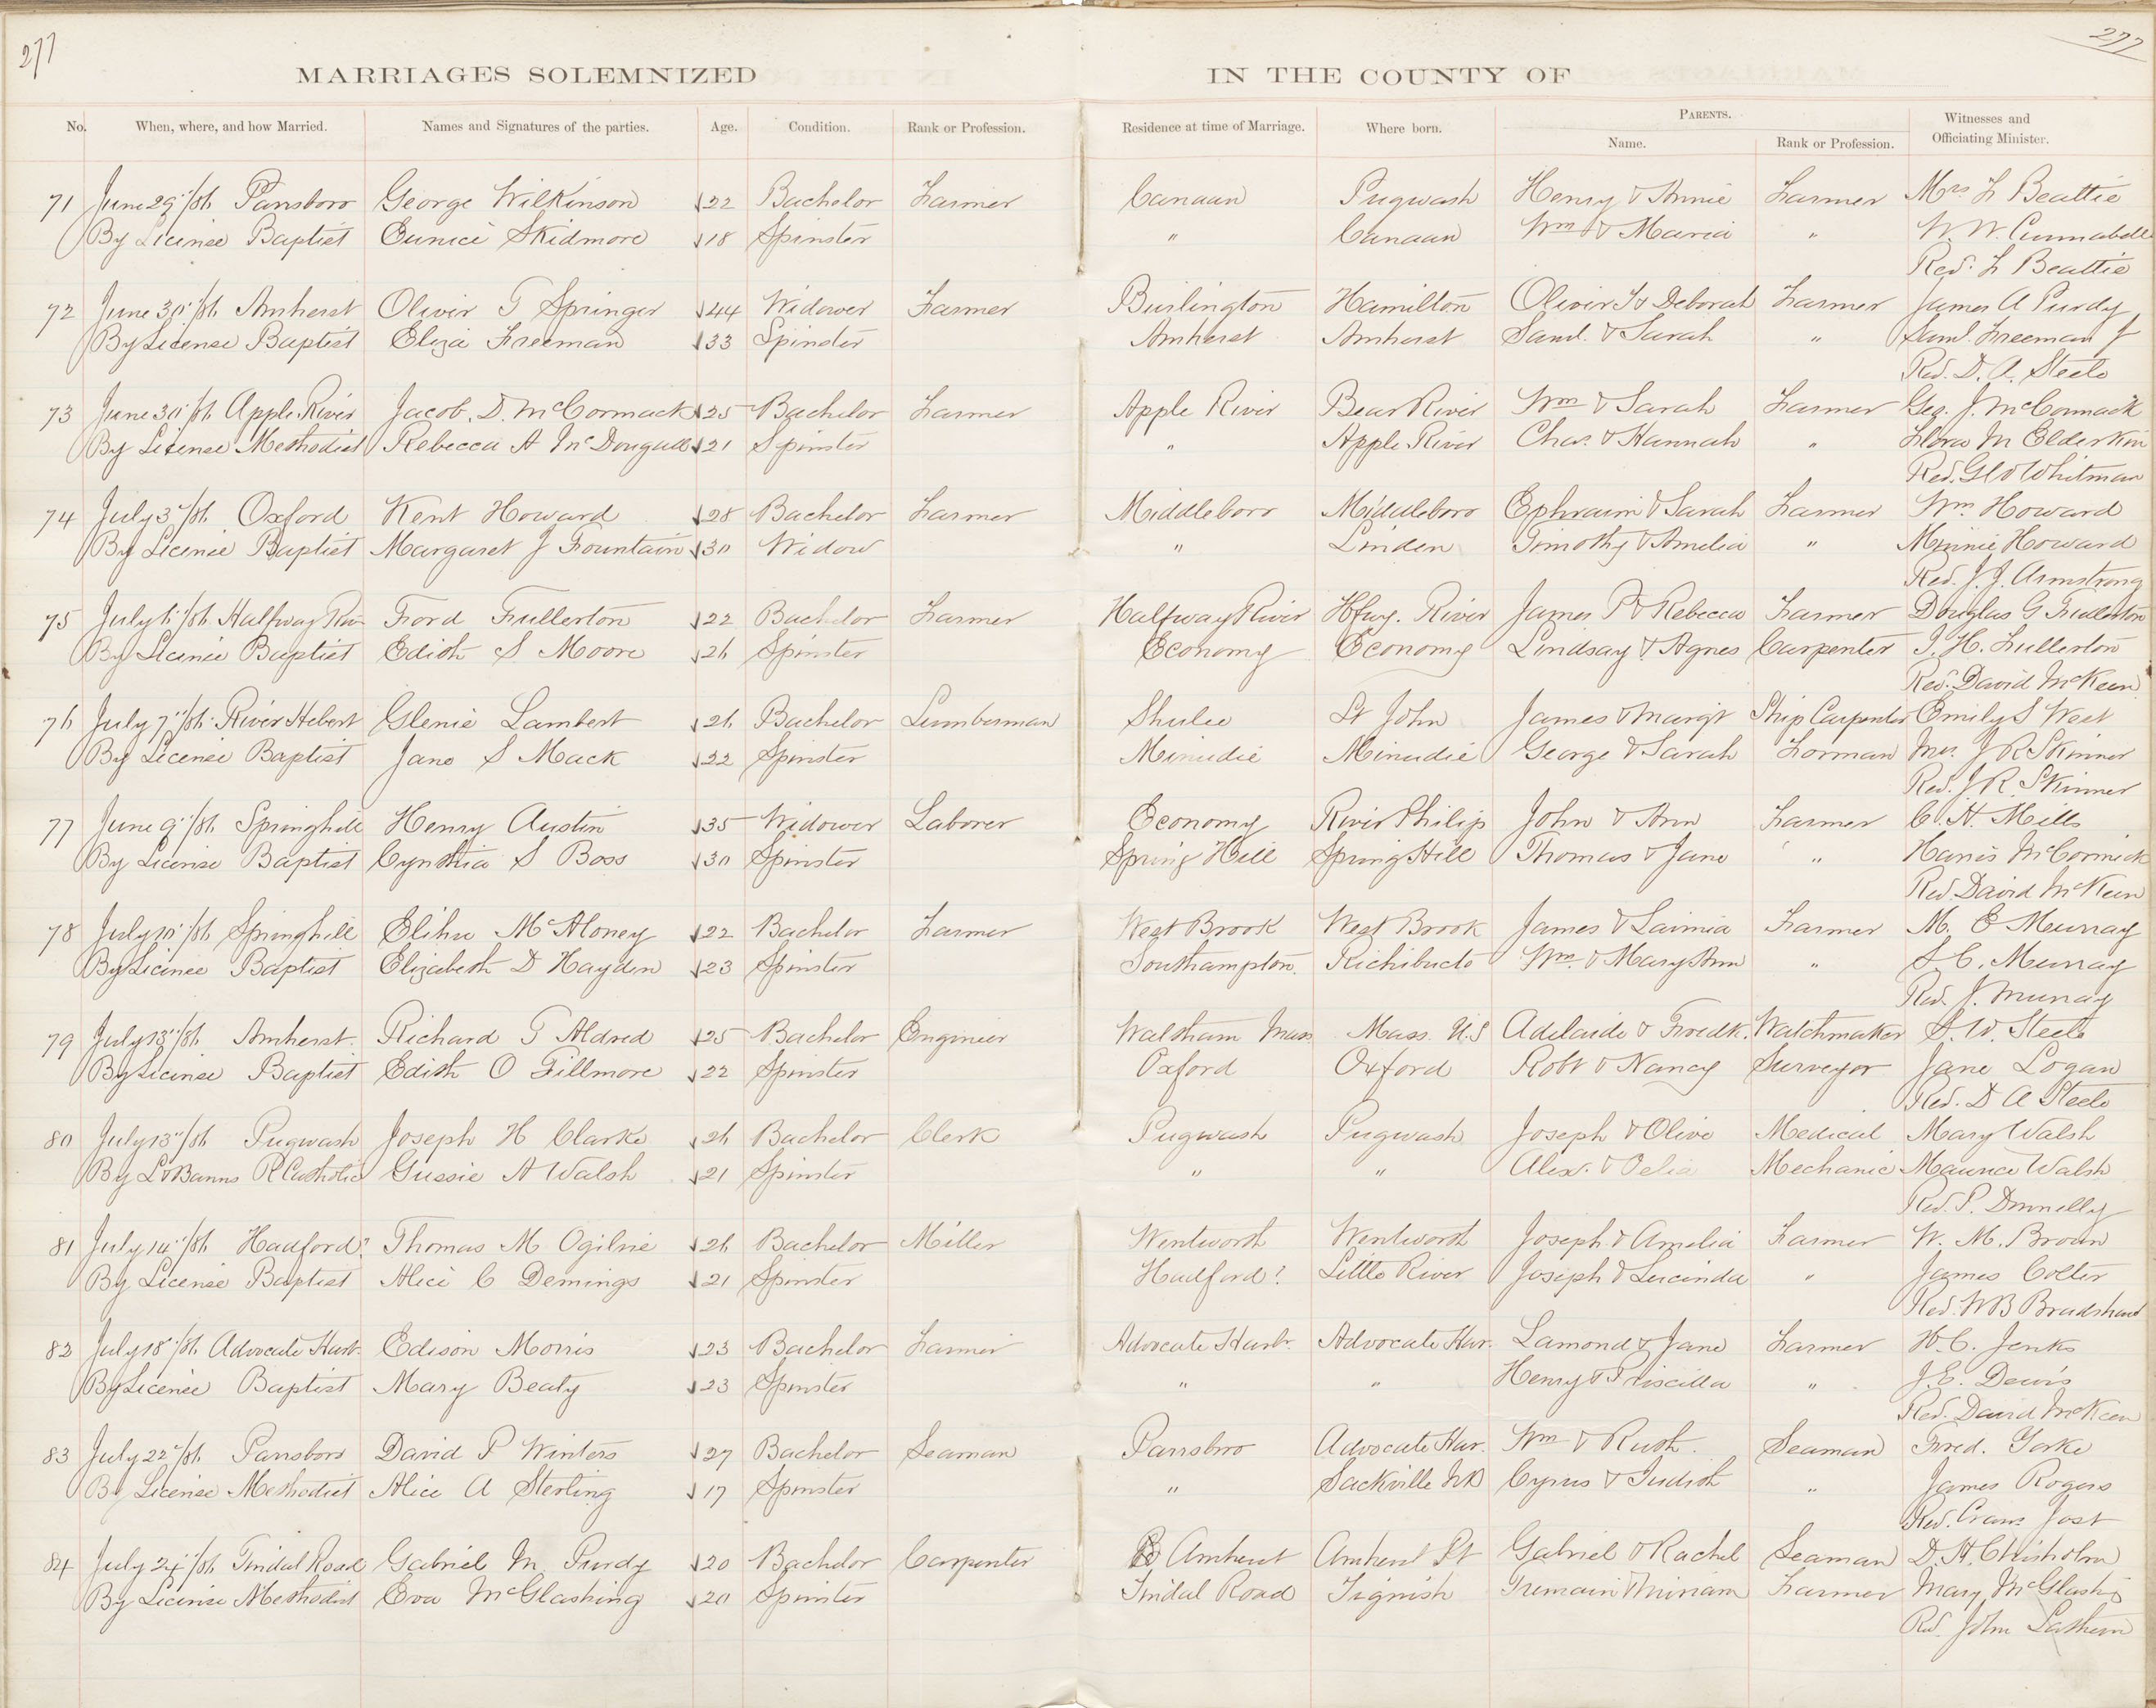 277
277
MARRIAGES SOLEMNIZED IN THE COUNTY OF
No. When, where, and how Married. Names and Signatures of the parties. Age. Condition. Rank or Profession. Residence at time of Marriage. Where born. PARENTS. Name. Rank or Profession. Witnesses and Officiating Minister.
71 June 29th/86 Parrsboro George Wilkinson 22 Bachelor Farmer Canaan Pugwash Henry & Annie Farmer Mrs F Beattie
By License Baptist Eunice Skidmore 18 Spinster " Canaan Wm & Maria " W. W. Cunnabell
Rev. F Beattie
72 June 30/86 Amherst Oliver T Springer 44 Widower Farmer Burlington Hamilton Oliver & Deborah Farmer James A Purdy
By License Baptist Eliza Freeman 33 Spinster Amherst Amherst Saml. & Sarah " Saml. Freeman Jr
Rev. D. A. Steele
73 June 30/86 Apple River Jacob. D. McCormack 25 Bachelor Farmer Apple River Bear River Wm & Sarah Farmer Geo. J. McCormack
By License Methodist Rebecca A McDougall 21 Spinster " Apple River Chas. & Hannah " Flora M Elderkin
Rev. Whitman
74 July 3/86 Oxford Kent Howard 28 Bachelor Farmer Middleboro Middleboro Ephraim & Sarah Farmer Wm. Howard
By License Baptist Margaret J Fountain 30 Widow " Linden Timothy & Amelia " Minnie Howard
Rev. J. J. Armstrong
75 July 6/86 Halfway Riv Ford Fullerton 22 Bachelor Farmer Halfway River Hfwy. River James P & Rebecca Farmer Douglas G Fullerton
By License Baptist Edith S Moore 26 Spinster Economy Economy Lindsay & Agnes Carpenter J. H. Fullerton
Rev. David McKeen
76 July 7th/86 River Hebert Glenie Lambert 26 Bachelor Lumberman Shulee St John James & Margt Ship Carpenter Emily S West
By License Baptist Jane S Mack 22 Spinster Minudie Minudie George & Sarah Forman Mrs. J R Skinner
Rev. J R. Skinner
77 June 9th/86 Springhill Henry Austin 35 Widower Laborer Economy River Philip John & Ann Farmer C. H. Mills
By License Baptist Cynthia S Boss 30 Spinster Spring Hill Spring Hill Thomas & Jane " Harris McCormick
Rev. David McKeen
78 July 10th/86 Springhill Elihu McAloney 22 Bachelor Farmer West Brook West Brook James & Lavinia Farmer M. E Murray
By License Baptist Elizabeth D Hayden 23 Spinster Southampton. Richibucto Wm. & Mary Ann " S. C. Murray
Rev. J. Murray
79 July 13th/86 Amherst. Richard T Aldred 25 Bachelor Engineer Waltham Mass. Mass. U.S Adelaide & Fredk. Watchmaker S. W. Steele
By License Baptist Edith O Fillmore 22 Spinster Oxford Oxford Robt & Nancy Surveyor Jane Logan
Rev. D A Steele
80 July 13th/86 Pugwash Joseph H Clarke 26 Bachelor Clerk Pugwash Pugwash Joseph & Olive Medical Mary Walsh
By L & Banns R Catholic Gussie A Walsh 21 Spinster " " Alex. & Delia Mechanic Maurice Walsh
Rev. P. Donnelly
81 July 14th/86 Hadford? Thomas M Ogilvie 26 Bachelor Miller Wentworth Wentworth Joseph & Amelia Farmer W. M. Brown
By License Baptist Alice C Demings 21 Spinster Hadford? Little River Joseph & Lucinda " James Colter
Rev. W B Bradshaw
82 July 18/86 Advocate Harb. Edison Morris 23 Bachelor Farmer Advocate Harb. Advocate Har. Lamond & Jane Farmer H. C. Jenks
By License Baptist Mary Beaty 23 Spinster " " Henry & Priscilla " J. E. Dewis
Rev. David McKeen
83 July 22/86 Parrsboro David P Winters 27 Bachelor Seaman Parrsboro Advocate Har. Wm & Ruth. Seaman Fred. Yorke
By License Methodist Alice A Sterling 17 Spinster " Sackville NB Cyrus & Judith " James Rogers
Rev. Cran. Jost
84 July 24th/86 Tindal Road Gabriel M. Purdy 20 Bachelor Carpenter Amherst Amherst Pt Gabriel & Rachel Seaman D. H. Chisholm
By License Methodist Eva McGlashing 20 Spinster Tindal Road Tignish Tremain & Miriam Farmer Mary McGlashing
Rev. John Lathern